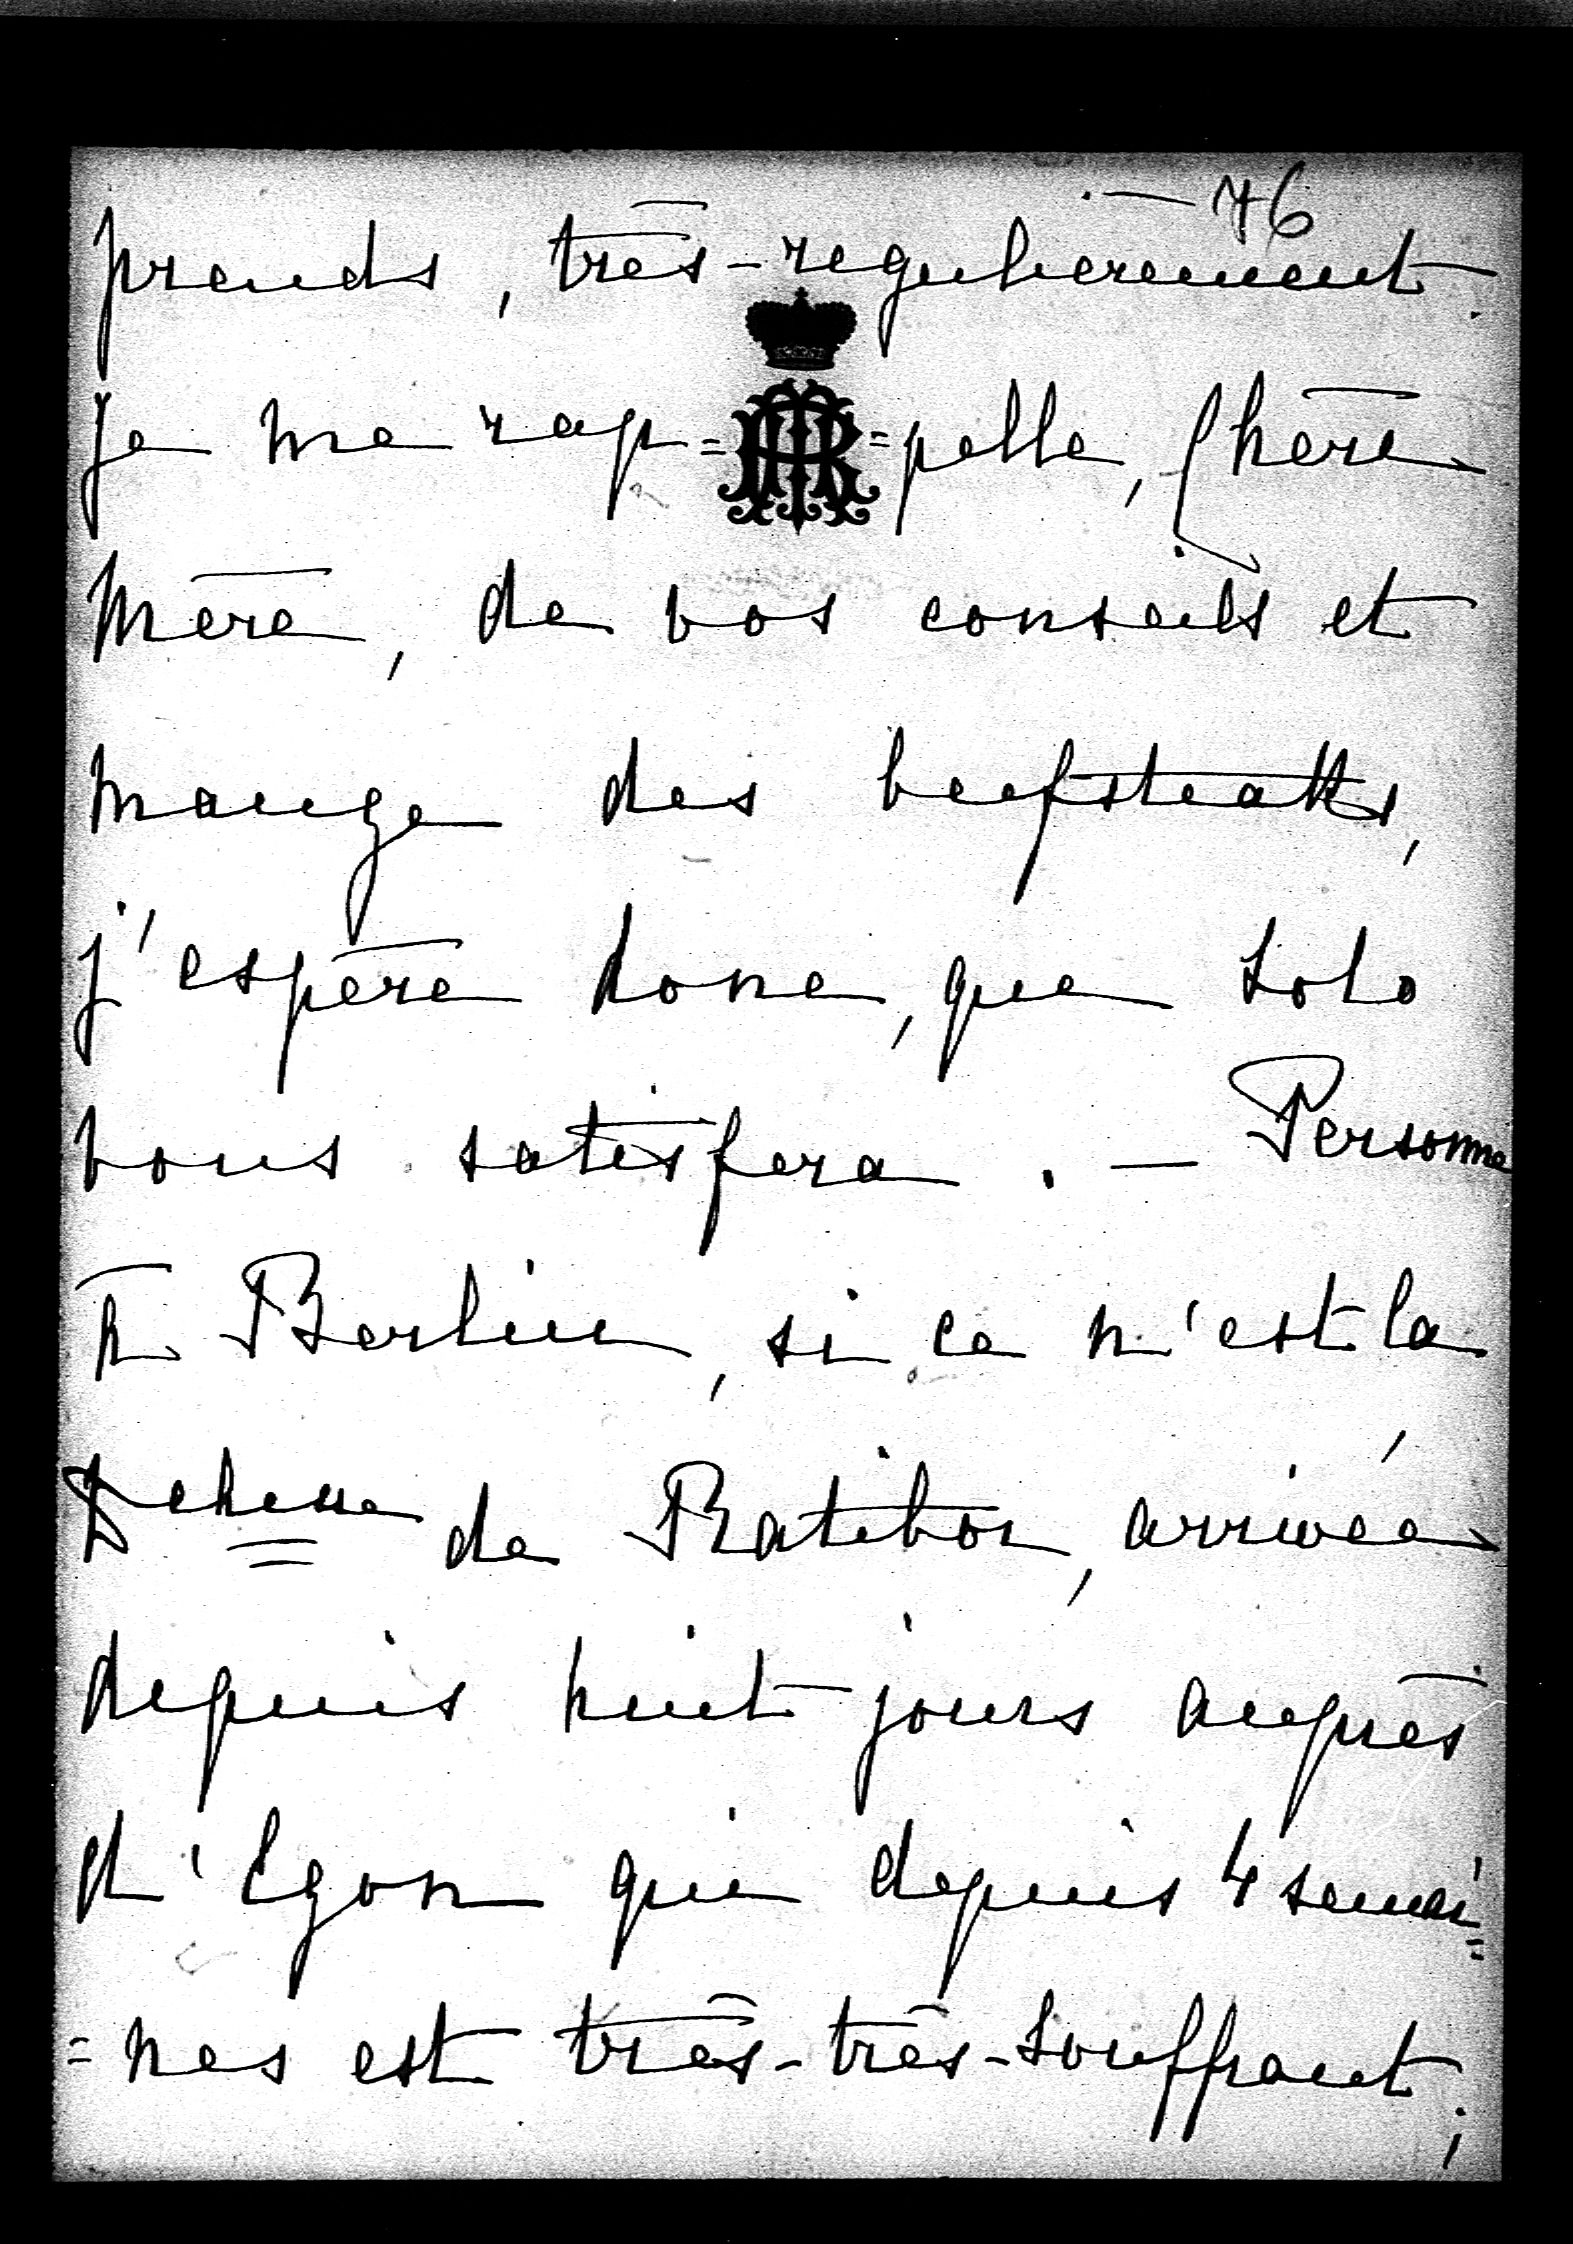 76
prends, très-regulièrement.
Je me rap= =pelle, Chère
Mère, de vos conseils et
mange des beefsteaks,
j'espère donc, que Lolo
vous satisfera. — Personne
à Berlin, si ce n'est la
Dchesse de Ratibor, arrivée
depuis huit jours auprès
d'Egon qui depuis 4 semai=
=nes est très-très-souffrant;